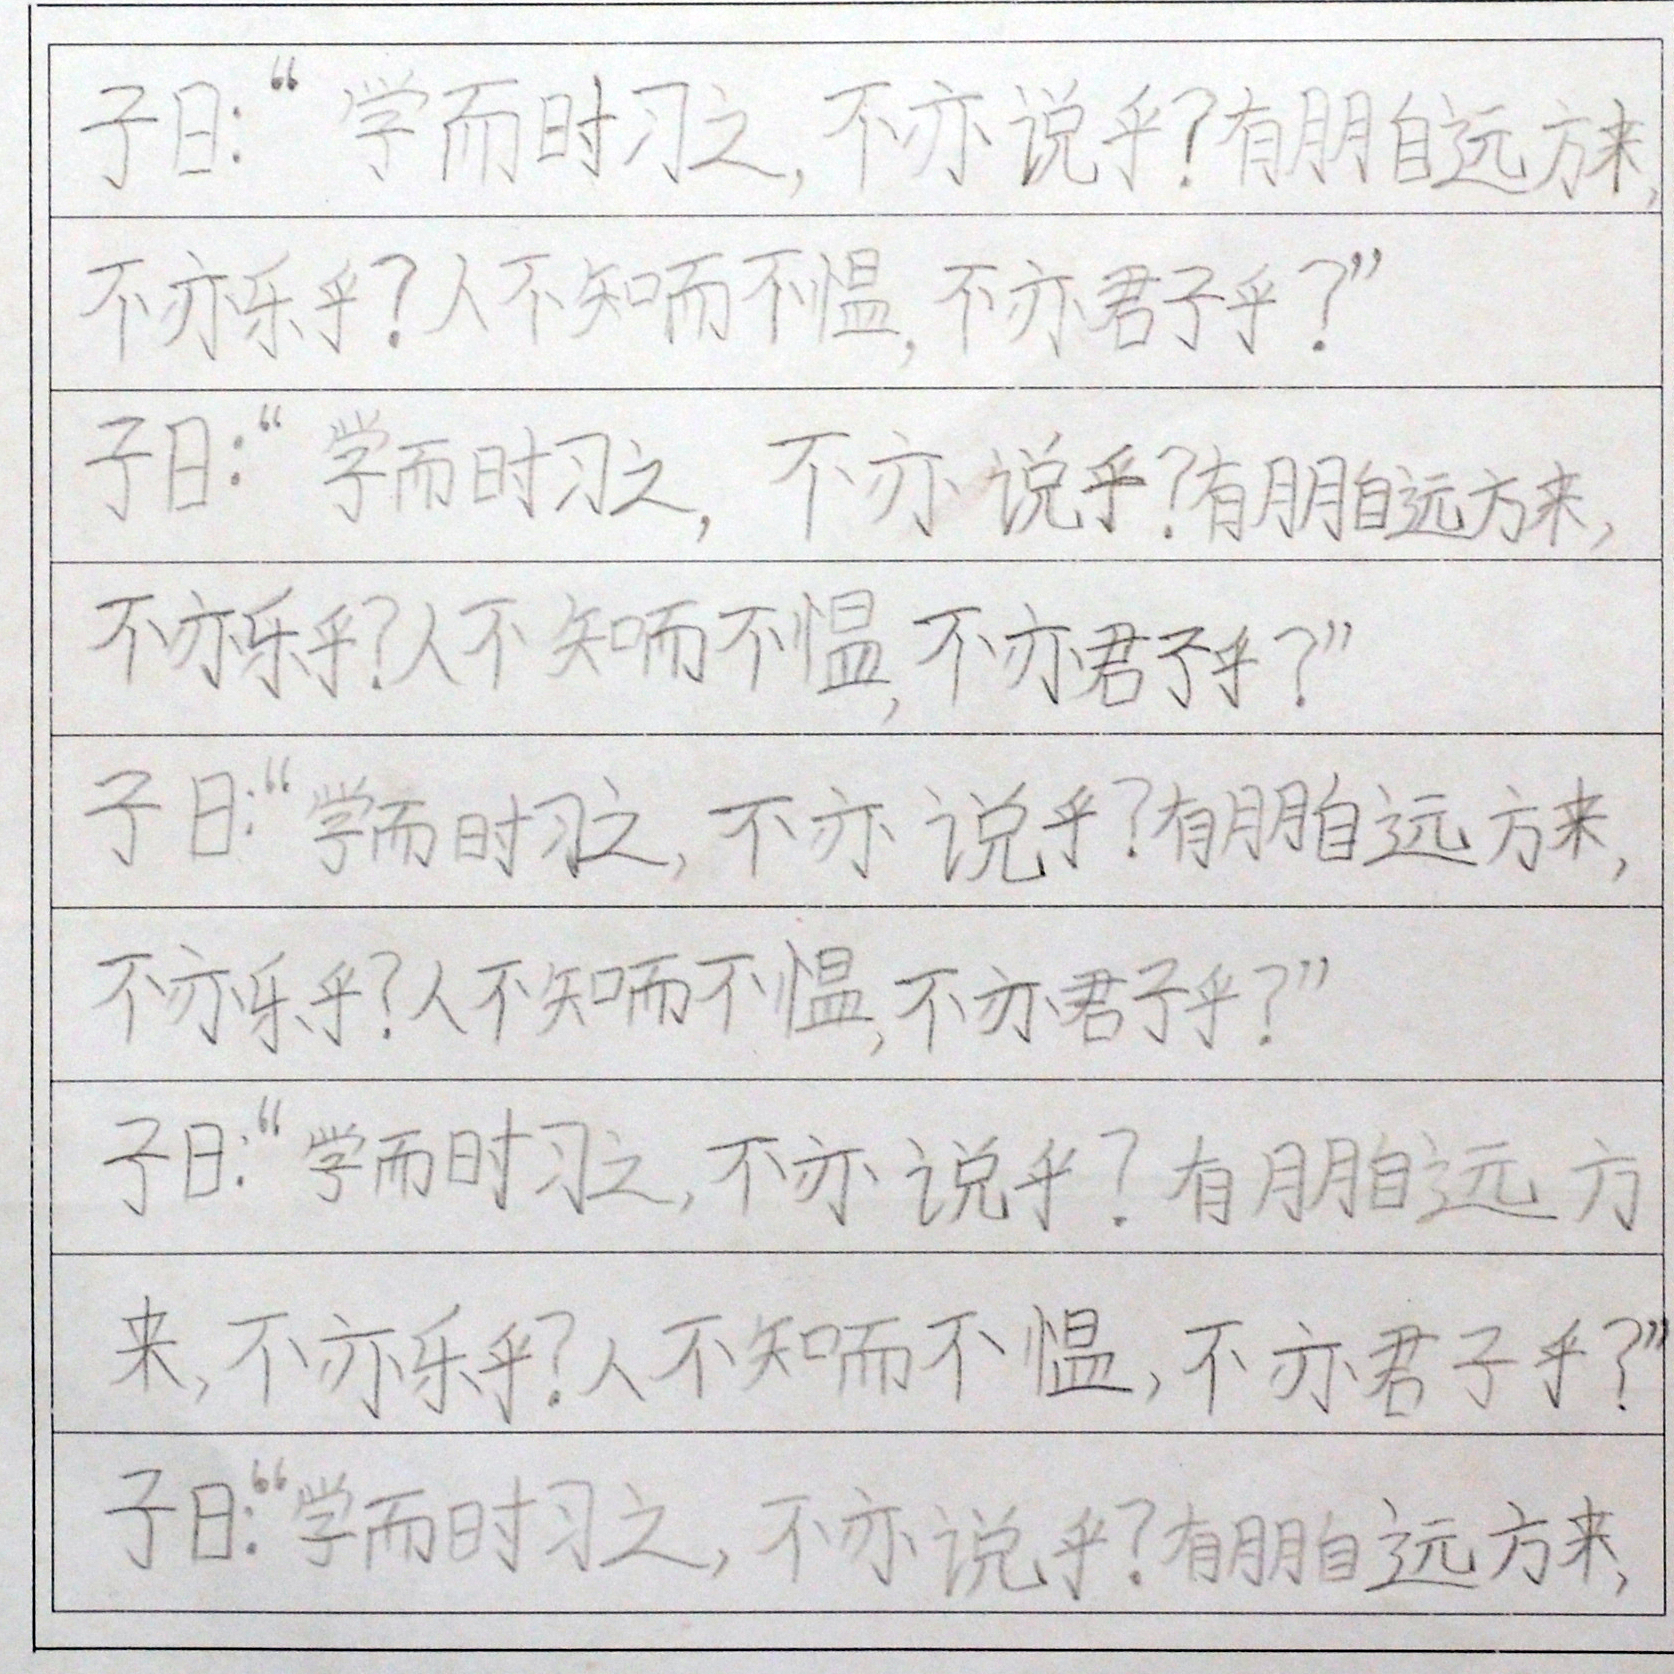 子曰:“学而时习之,不亦说乎?有朋自远方来,
不亦乐乎?人不知而不愠,不亦君子乎?”
子曰:“学而时习之,不亦说乎?有朋自远方来,
不亦乐乎?人不知而不愠,不亦君子乎?”
子曰:“学而时习之,不亦说乎?有朋自远方来,
不亦乐乎?人不知而不愠,不亦君子乎?”
子曰:“学而时习之,不亦说乎?有朋自远方
来,不亦乐乎?人不知而不愠,不亦君子乎?”
子曰:“学而时习之,不亦说乎?有朋自远方来,